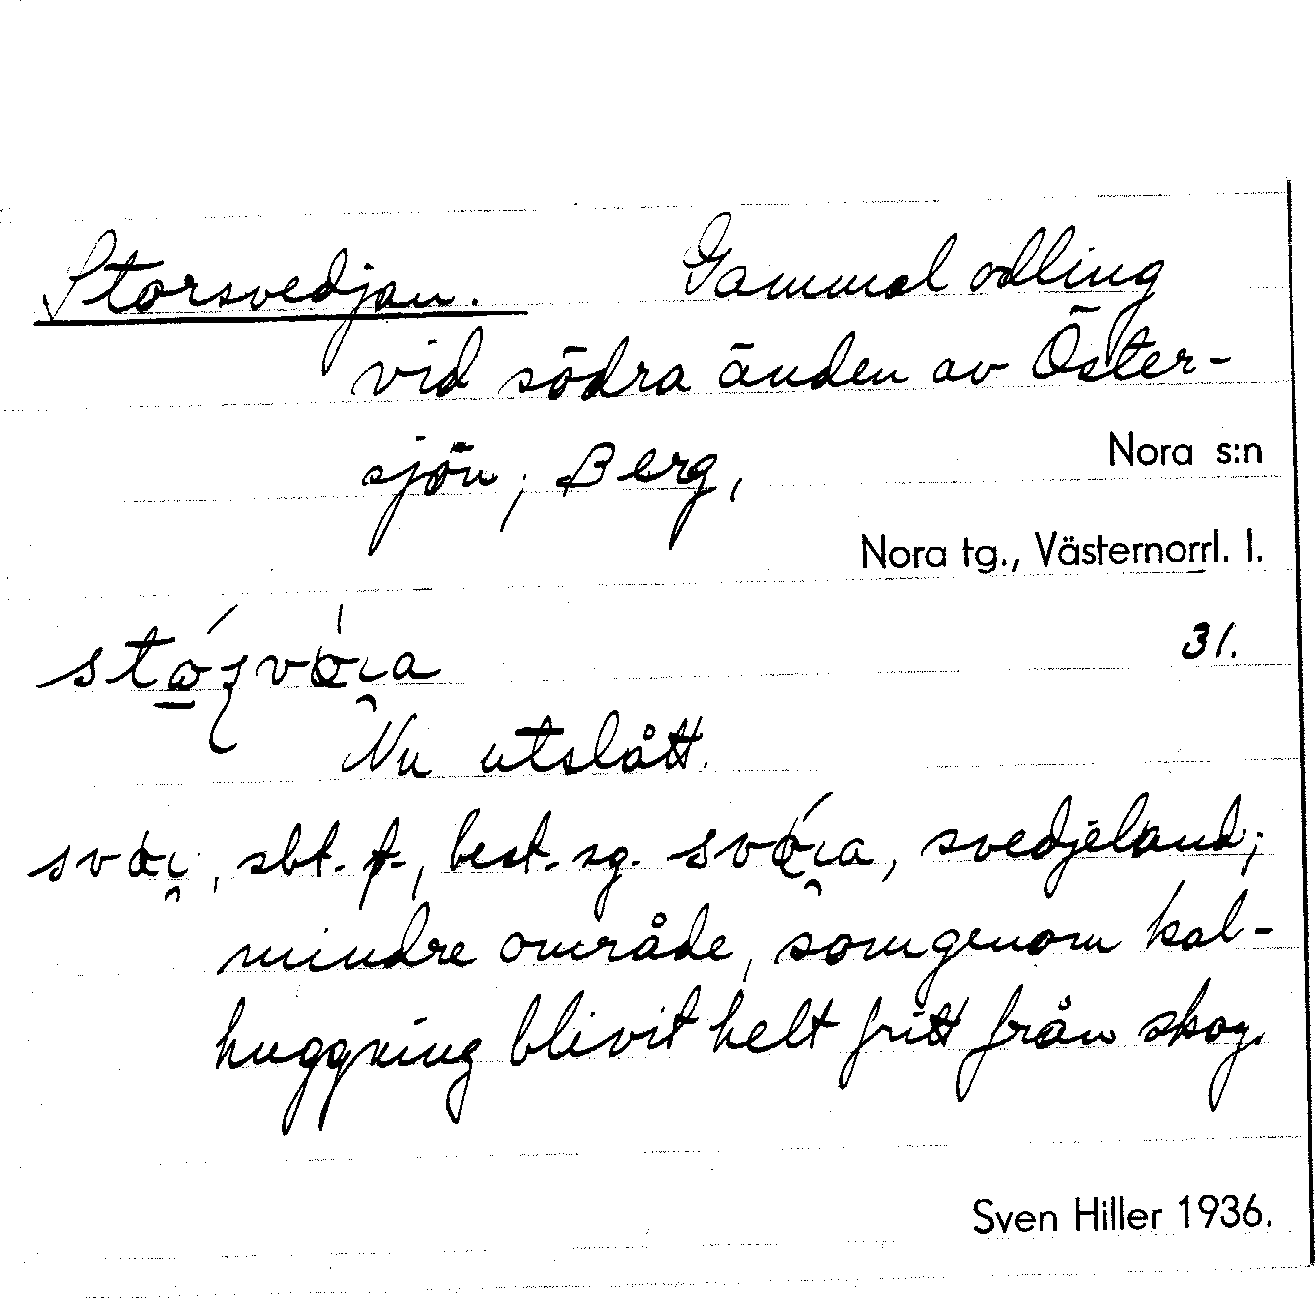 Storsvedjan. Gammal odling
vid södra änden av Öster-
sjön, Berg,
Nora s:n
Nora tg., Västernorrl. l.
31.
Nu utslått.
sbt. f., best. sg. svedjeland;
mindre område, som genom kal-
huggning blivit helt fritt från skog.
Sven Hiller 1936.